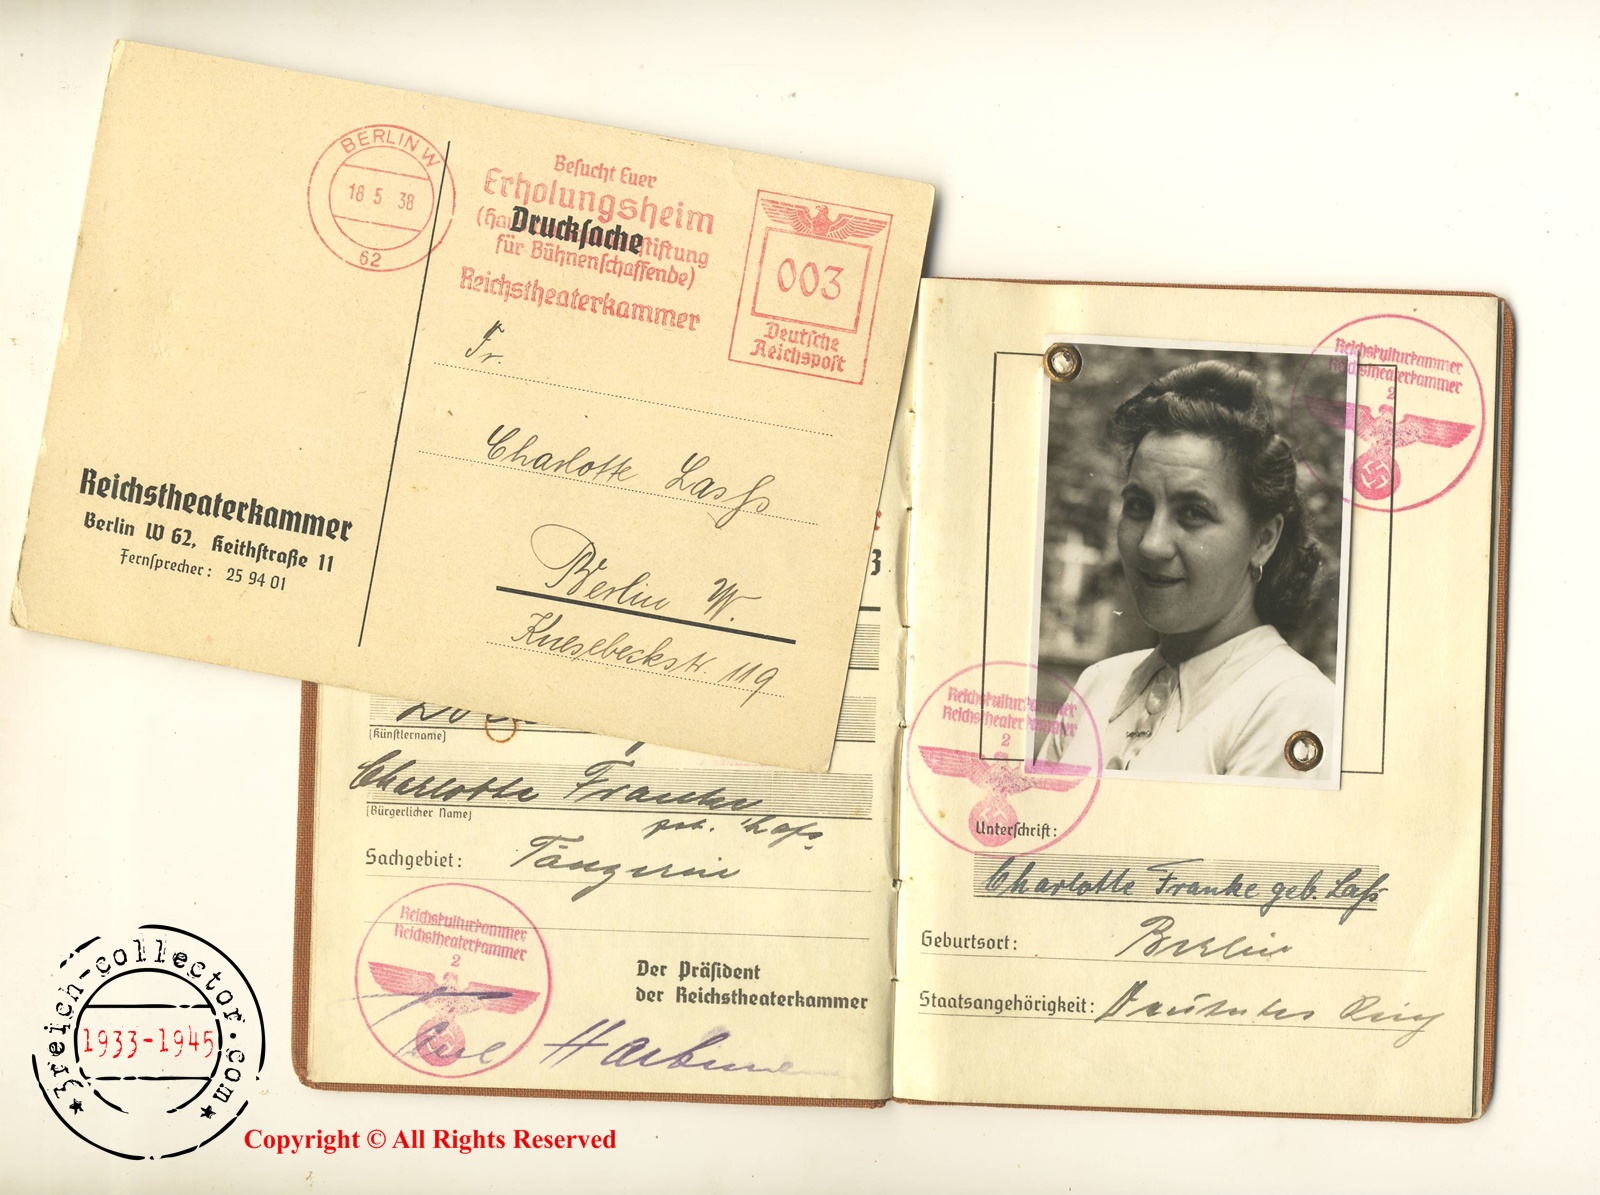 BERLIN W
18 5 38
62
Besucht Euer
Erholungsheim
Drucksache
stiftung
für Bühnenschaffende)
Reichstheaterkammer
003
Deutsche
Reichspost
Fr.
Charlotte Lass
Berlin W.
Knesebeckstr. 119
Reichstheaterkammer
Berlin W 62, Keithstraße 11
Fernsprecher: 25 94 01
3
(Künstlername)
Charlotte Franke
(Bürgerlicher Name)
geb. Lass
Sachgebiet: Tänzerin
Reichskulturkammer
Reichstheaterkammer
2
Der Präsident
der Reichstheaterkammer
Reichskulturkammer
Reichstheaterkammer
2
Reichskulturkammer
Reichstheaterkammer
2
Unterschrift:
Charlotte Franke geb. Lass
Geburtsort: Berlin
Staatsangehörigkeit: Deutsches
3reich-collector.com
1933-1945
Copyright © All Rights Reserved